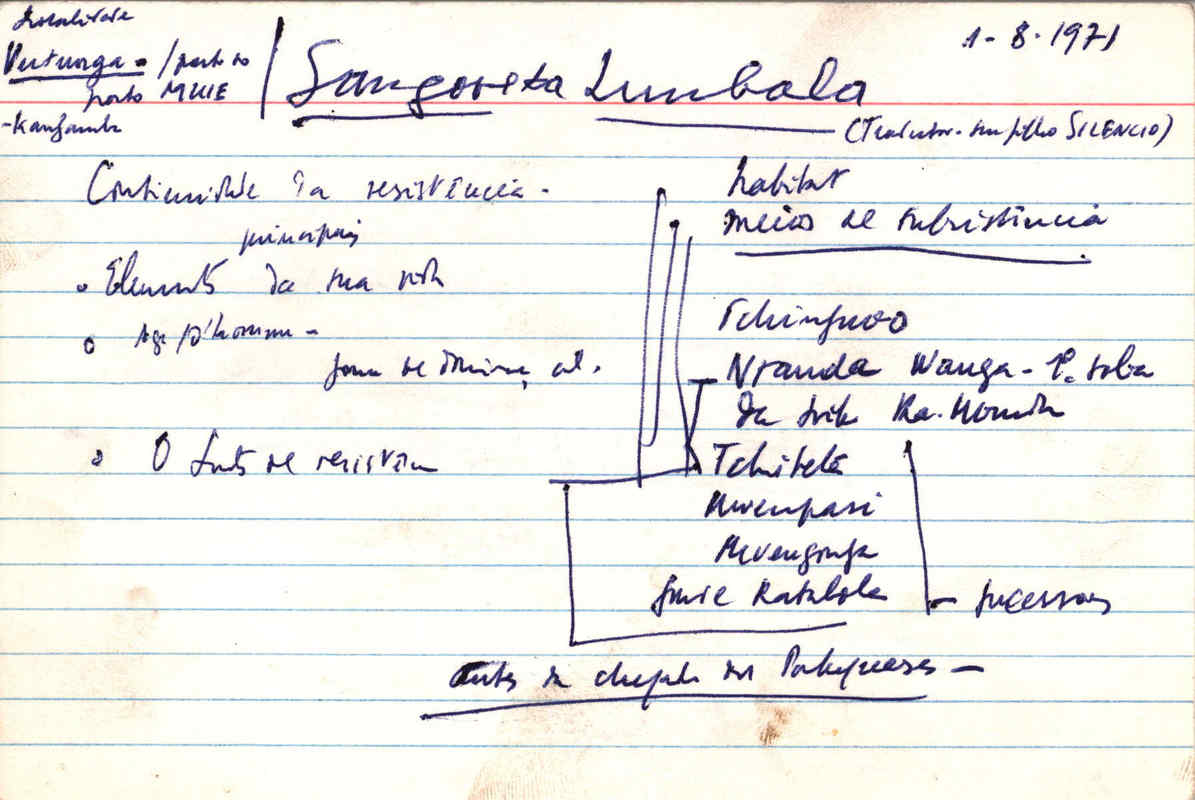 Localidade
Vutuonga - /perto do
posto MUIE
- Kangamba
Sangoveta Lumbala
1-8-1971
(Tradutor - seu filho SILENCIO)
Continuidade da resistência -
principais
Elementos da sua vida
O da resistência
habitat
meios de subsistência
Tchinguvo
Nranda Wanga - 1º. soba
da
Tchitetá
Mwenpasi
Muvengonga
Katalola
- sucessores
antes da chegada dos Portugueses -